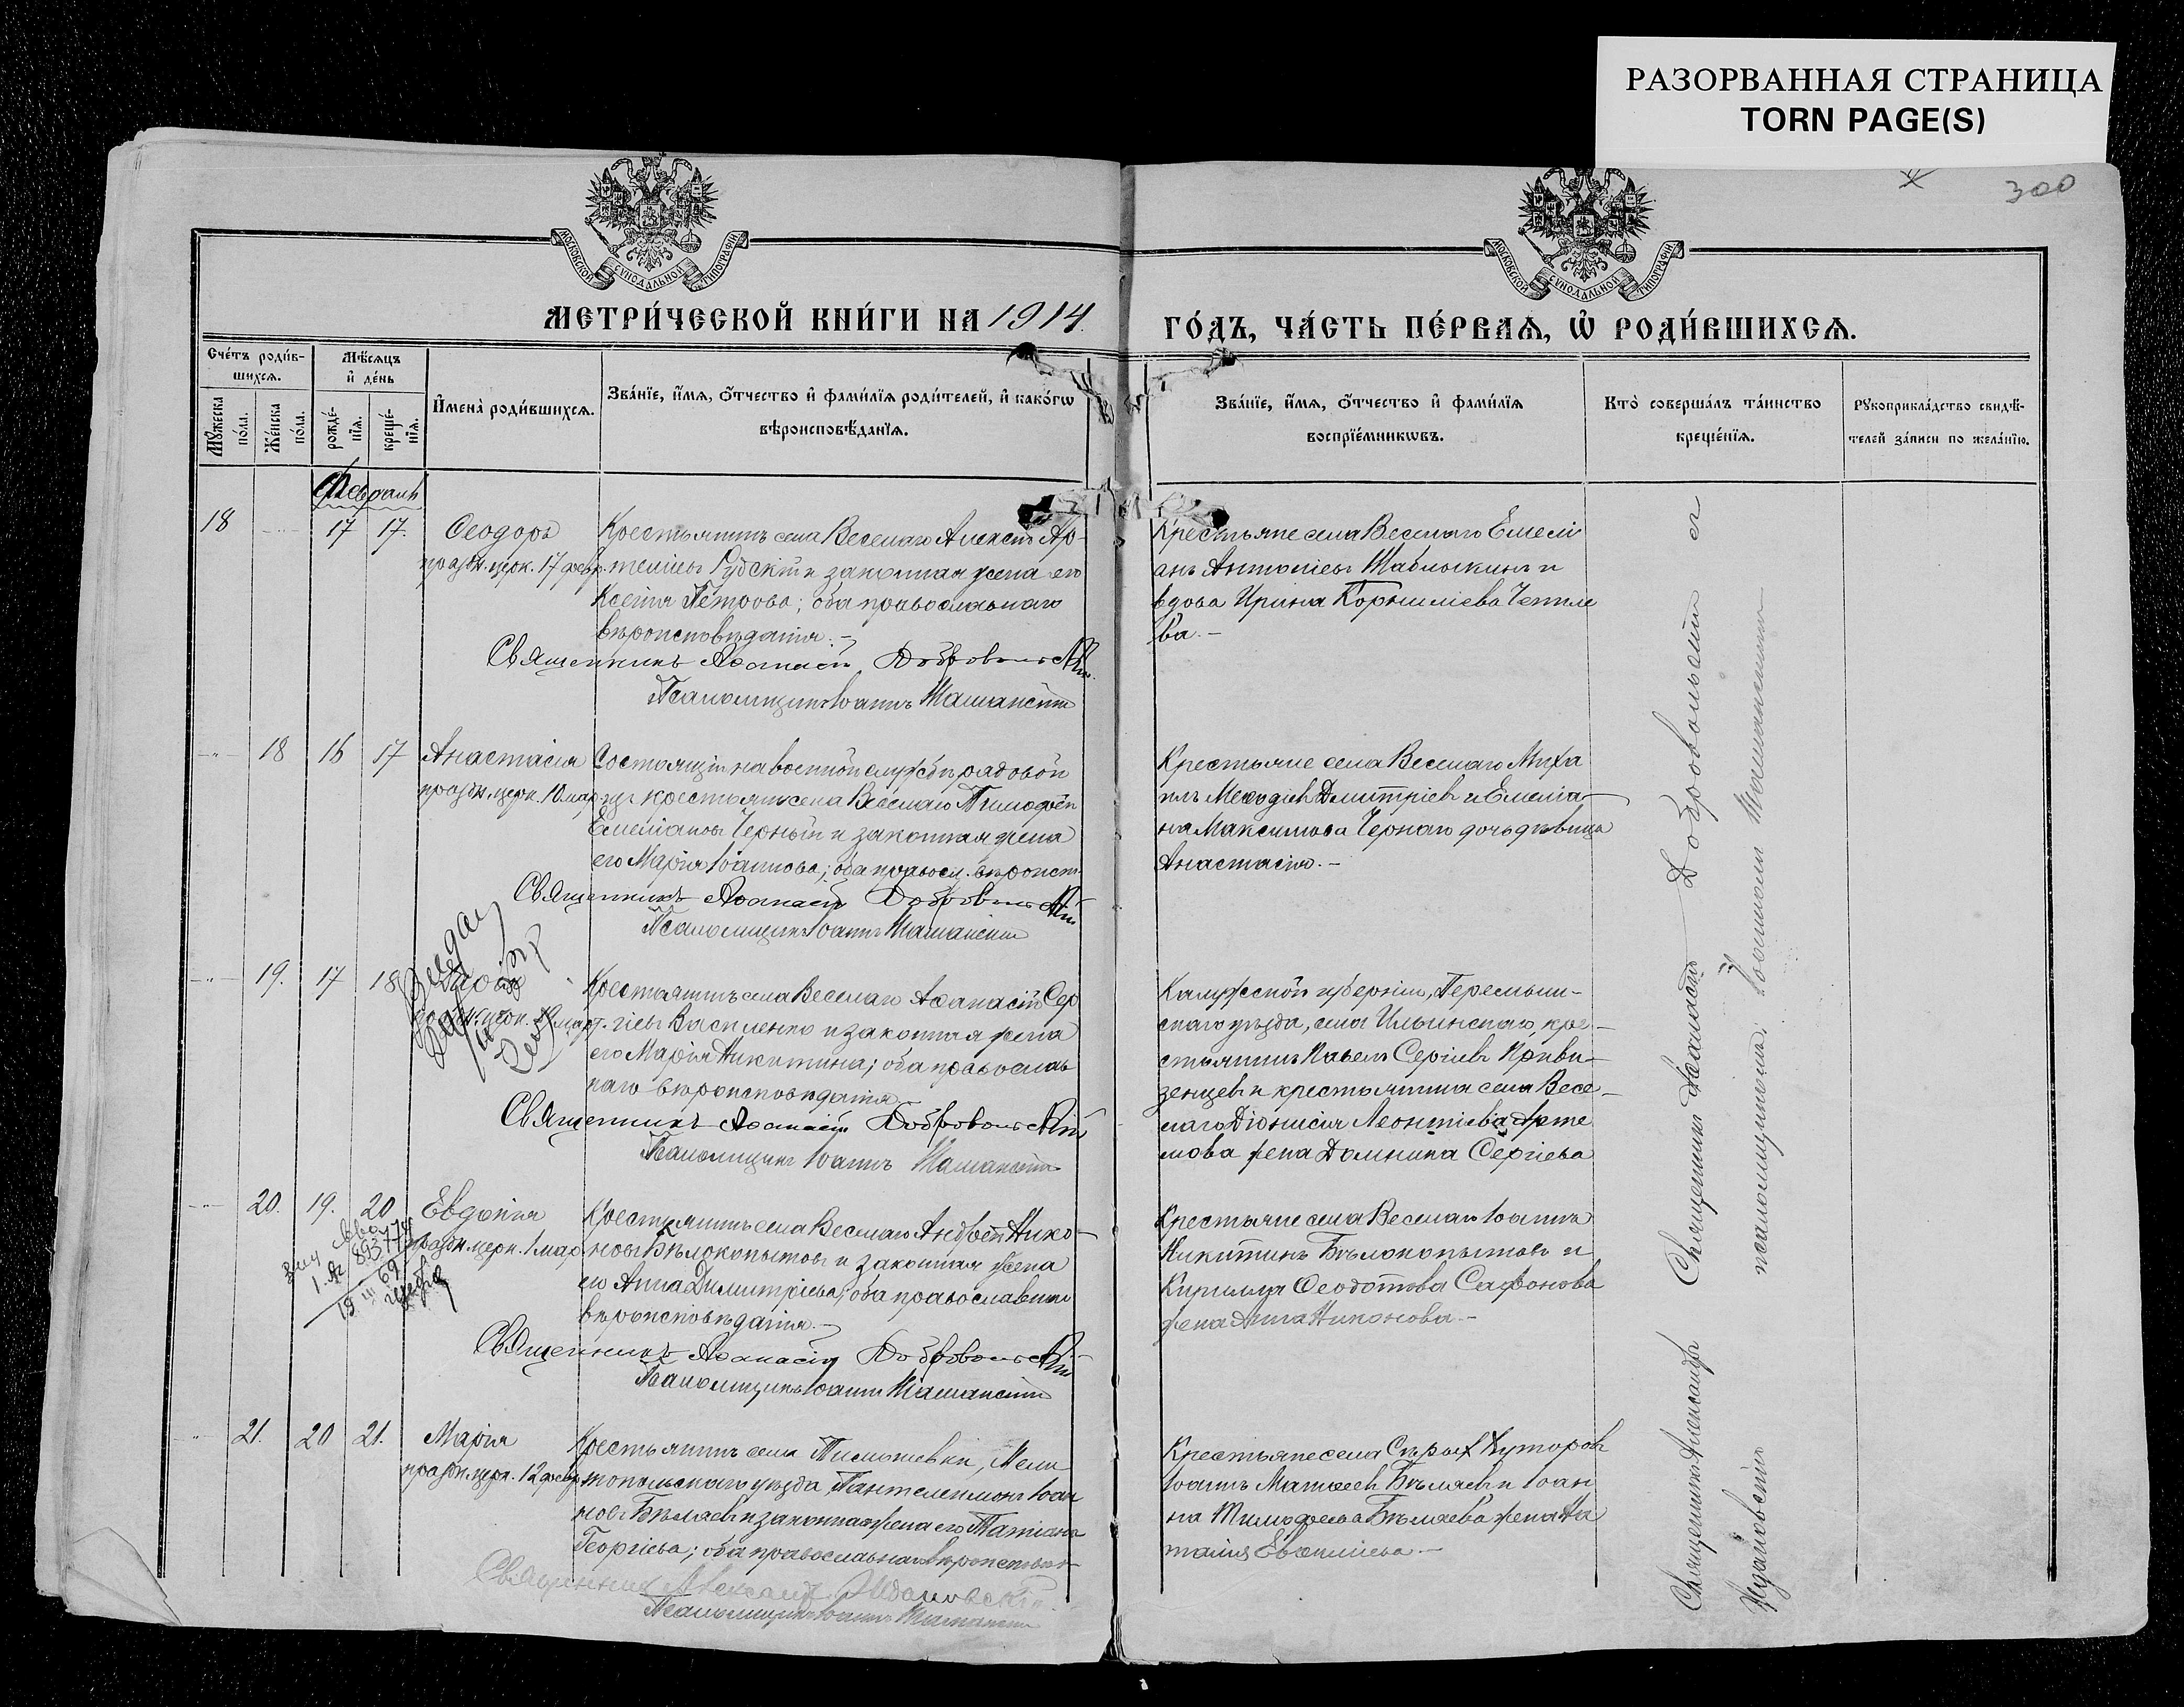 РАЗОРВАННАЯ СТРАНИЦА
TORN PAGE(S)
300
МОСКОВСКОЙ СѴНОДАЛЬНОЙ ТИПОГРАФІИ
МОСКОВСКОЙ СѴНОДАЛЬНОЙ ТИПОГРАФІИ
МЕТРИ́ЧЕСКОЙ КНИ́ГИ НА 1914.
ГО́ДЪ, ЧА́СТЬ ПЕ́РВАѦ, Ѡ҆ РОДИ́ВШИХСѦ.
Сче́тъ роди́в-
шихсѧ.
Мѣ́сѧцъ
и҆ де́нь
Мꙋ́жеска
по́ла.
Же́нска
по́ла.
рожде́-
нїѧ.
креще́-
нїѧ.
И҆мена̀ роди́вшихсѧ.
Зва́нїе, и҆́мѧ, ѻ҆́тчество и҆ фами́лїѧ роди́телей, и҆ како́гѡ
вѣроисповѣ́данїѧ.
Зва́нїе, и҆́мѧ, ѻ҆́тчество и҆ фами́лїѧ
воспрїе́мникѡвъ.
Кто̀ соверша́лъ та́инство
креще́нїѧ.
Рꙋкоприкла́дство свидѣ́-
телей за́писи по жела́нїю.
Февраль
18 17 17. Ѳеодоръ
праздн. церк. 17 февр.
Крестьянинъ села Веселаго Алексій Ар-
теміевъ Рудскій и законная жена его
Ксенія Петрова; оба православнаго
вѣроисповѣданія.-
Священникъ Аѳанасій Добровольскій
Псаломщикъ Іоаннъ Машанскій
Крестьяне села Веселаго Емелі
анъ Антоніевъ Шаблыкинъ и
вдова Ирина Корниліева Чепиле
ва.-
18 16 17 Анастасія
праздн. церк. 10 мар.
Состоящій на военной службѣ рядовой
изъ крестьянъ села Веселаго Тимоѳей
Емеліановъ Черный и законная жена
его Марія Іоаннова; оба правосл. вѣроисп.
Священникъ Аѳанасій Добровольскій
Псаломщикъ Іоаннъ Машанскій
Крестьяне села Веселаго Миха
илъ Меѳодіевъ Дмитріевъ и Емеліа-
на Максимова Чернаго дочь дѣвица
Анастасія.-
19. 17 18 Дарія
праздн. церк. 19 март.
Крестьянинъ села Веселаго Аѳанасій Сер
гіевъ Василенко и законная жена
его Марія Никитина; оба православ
наго вѣроисповѣданія.
Священникъ Аѳанасій Добровольскій
Псаломщикъ Іоаннъ Машанскій
Калужской губерніи, Перемыш-
скаго уѣзда, села Ильинскаго, кре-
стьянинъ Павелъ Сергіевъ Криви-
зенцевъ и крестьянина села Весе-
лаго Діонисія Леонтіева Арте
мова жена Домникiа Сергіева
20. 19. 20 Евдокія
праздн. церк. 1 мар.
Крестьянинъ села Веселаго Андрей Нико-
новъ Бѣлокопытовъ и законная жена
его Анна Димитріева; оба православнаго
вѣроисповѣданія.-
Священникъ Аѳанасій Добровольскій
Псаломщикъ Іоаннъ Машанскій
Крестьяне села Веселаго Іоаннъ
Никитинъ Бѣлокопытовъ и
Кирилла Ѳеодотова Сафонова
жена Анна Никонова.-
21. 20 21. Марія
праздн. церк. 12 февр.
Крестьянинъ села Тимошевки, Мели
топольскаго уѣзда, Пантелеимонъ Іоан
новъ Бѣляевъ и законная жена его Татіана
Георгіева; оба православнаго вѣроисповѣд.
Священникъ Александръ Ждановскій
Псаломщикъ Іоаннъ Машанскій
Крестьяне села Сѣрыхъ Хуторовъ
Іоаннъ Матѳеевъ Бѣляевъ и Іоан
на Тимоѳеева Бѣляева жена На
талія Евѳиміева.-
Священникъ Аѳанасій Добровольскій съ
псаломщикомъ Іоанномъ Машанскимъ
Священникъ Александръ
Ждановскій